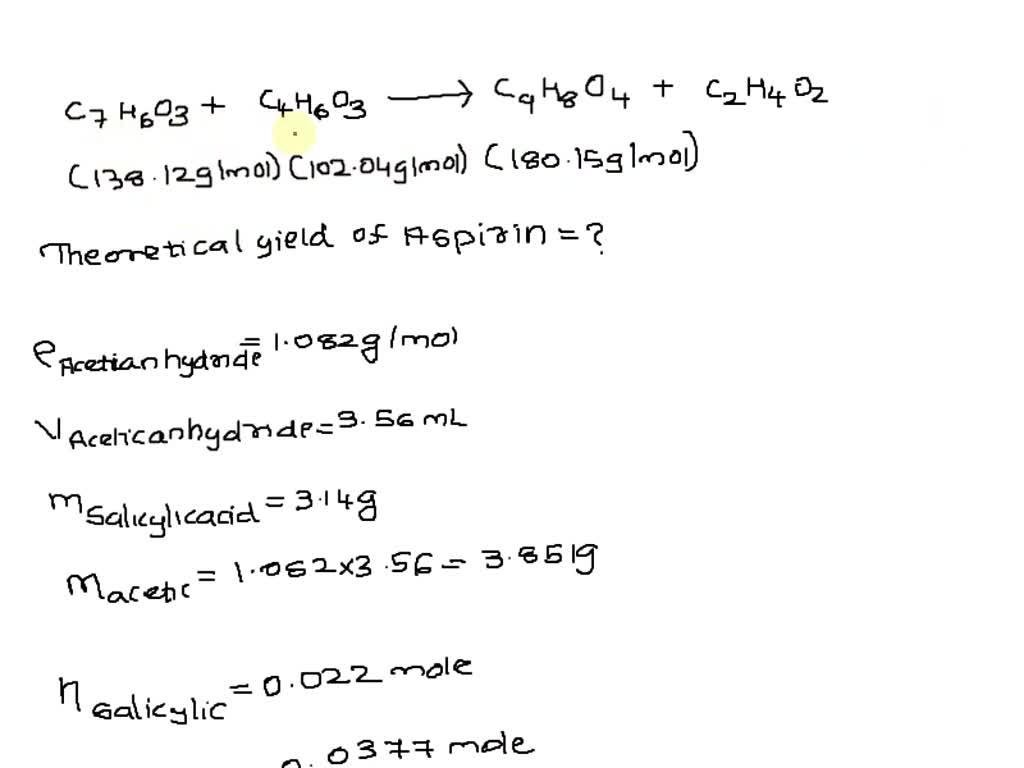 C7H6O3 + C4H6O3 → C9H8O4 + C2H4O2
(138.12g/mol) (102.04g/mol) (180.15g/mol)
Theoretical yield of Aspirin = ?
ρAcetianhydride = 1.082g/mol
VAceticanhydride = 3.56 mL
mSalicylicacid = 3.14g
macetic = 1.082×3.56 = 3.851g
nsalicylic = 0.022 mole
0.0377 mole